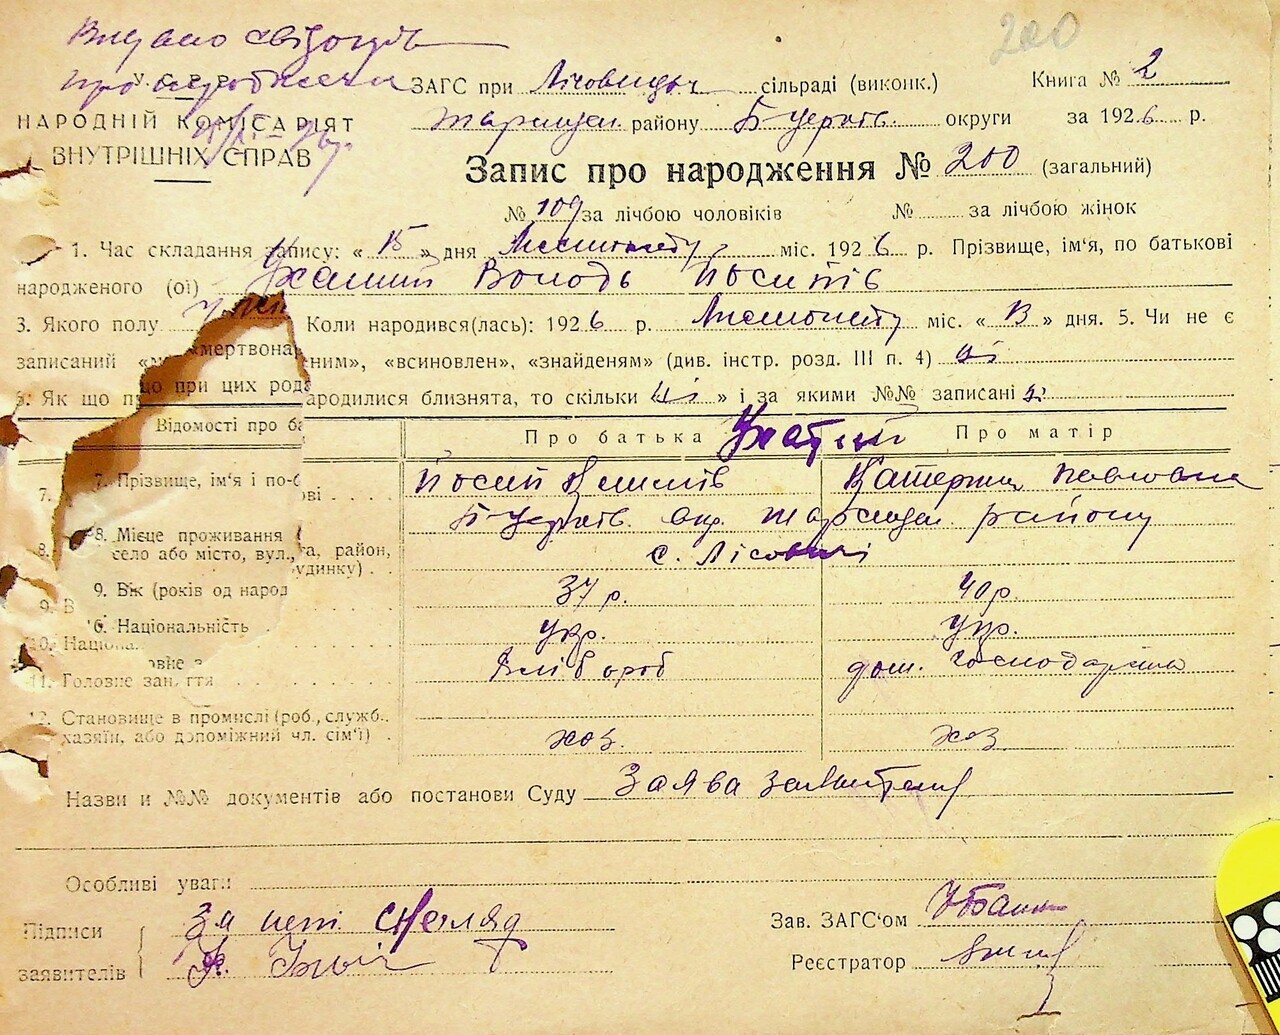 200
Видано свідоцтв
про народження
У.С.Р.Р. ЗАГС при сільраді (виконк.) Книга № 2
НАРОДНІЙ КОМІСАРІЯТ району Б-Церків. округи за 1926 р.
ВНУТРІШНІХ СПРАВ
Запис про народження № 200 (загальний)
№ 109 за лічбою чоловіків № за лічбою жінок
1. Час складання запису: « 15 » дня Листопаду міс. 1926 р. Прізвище, ім'я, по батькові
народженого (ої) Володь Йосипів
3. Якого полу Коли народився(лась): 1926 р. Листопаду міс. « » дня. 5. Чи не є
записаний «мертвонар ним», «всиновлен», «знайденям» (див. інстр. розд. III п. 4) ні
6. Як що п що при цих род ародилися близнята, то скільки ні » і за якими №№ записані
Відомості про ба Про батька Про матір
7. 7. Прізвище, ім'я і по-б ові Йосип Катерина Павловна
8. 8. Місце проживання ( Б-Церків. окр. району
село або місто, вул., та, район, удинку) с. Лісовичі
9. В 9. Вік (років од народ 37 р. 40 р.
10. Націона. 6. Національність укр. укр.
11. Головне заняття хлібороб дом. господарка
12. Становище в промислі (роб., служб.,
хазяїн, або допоміжний чл. сім'ї) хоз. хоз
Назви и №№ документів або постанови Суду Заява заявителя
Особливі уваги
Підписи За неп. Зав. ЗАГС'ом
заявителів Реєстратор